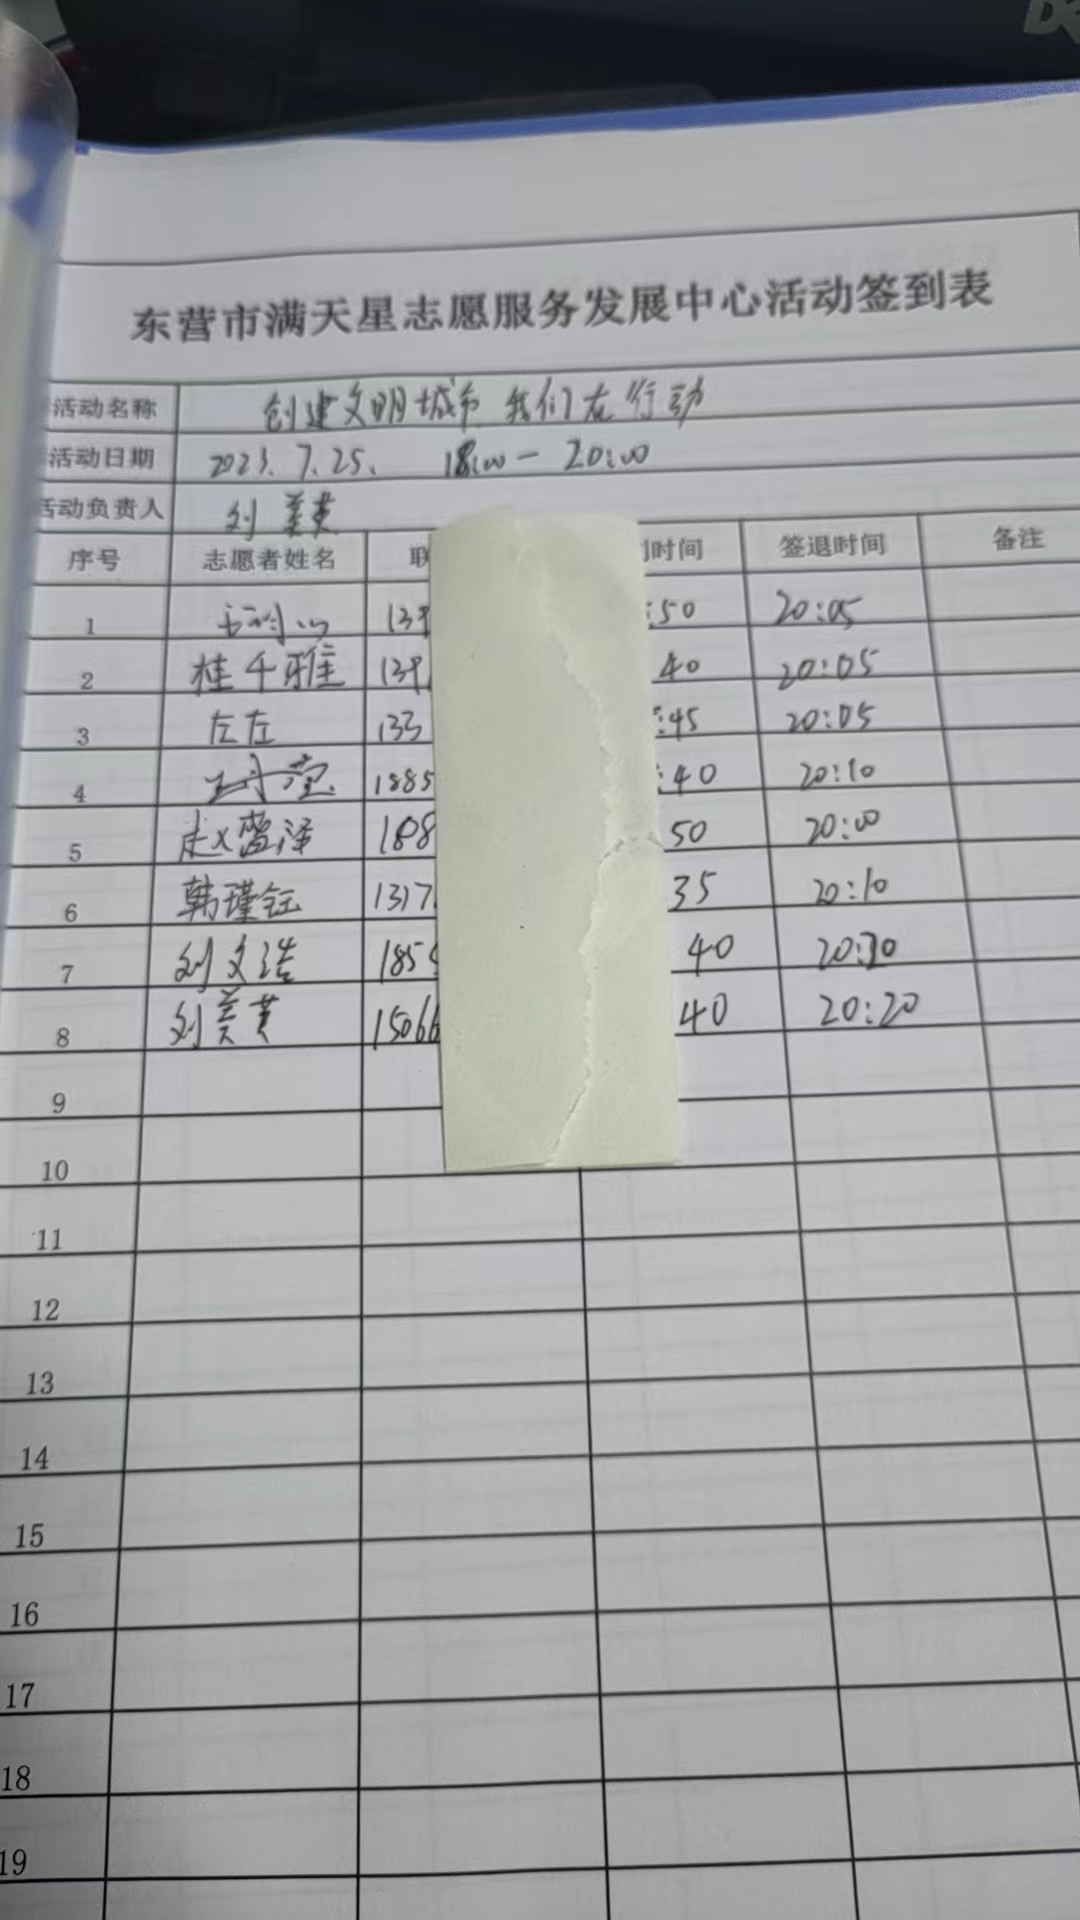 东营市满天星志愿服务发展中心活动签到表
活动名称 创建文明城市 我们在行动
活动日期 2023.7.25. 18:00-20:00
活动负责人 刘美黄
序号 志愿者姓名 联 时间 签退时间 备注
1 139 :50 20:05
2 桂千雅 139 40 20:05
3 左左 133 :45 20:05
4 1885 :40 20:10
5 188 50 20:00
6 韩瑾钰 1317 35 20:10
7 刘文浩 185 40
8 刘美黄 15066 40 20:20
9
10
11
12
13
14
15
16
17
18
19